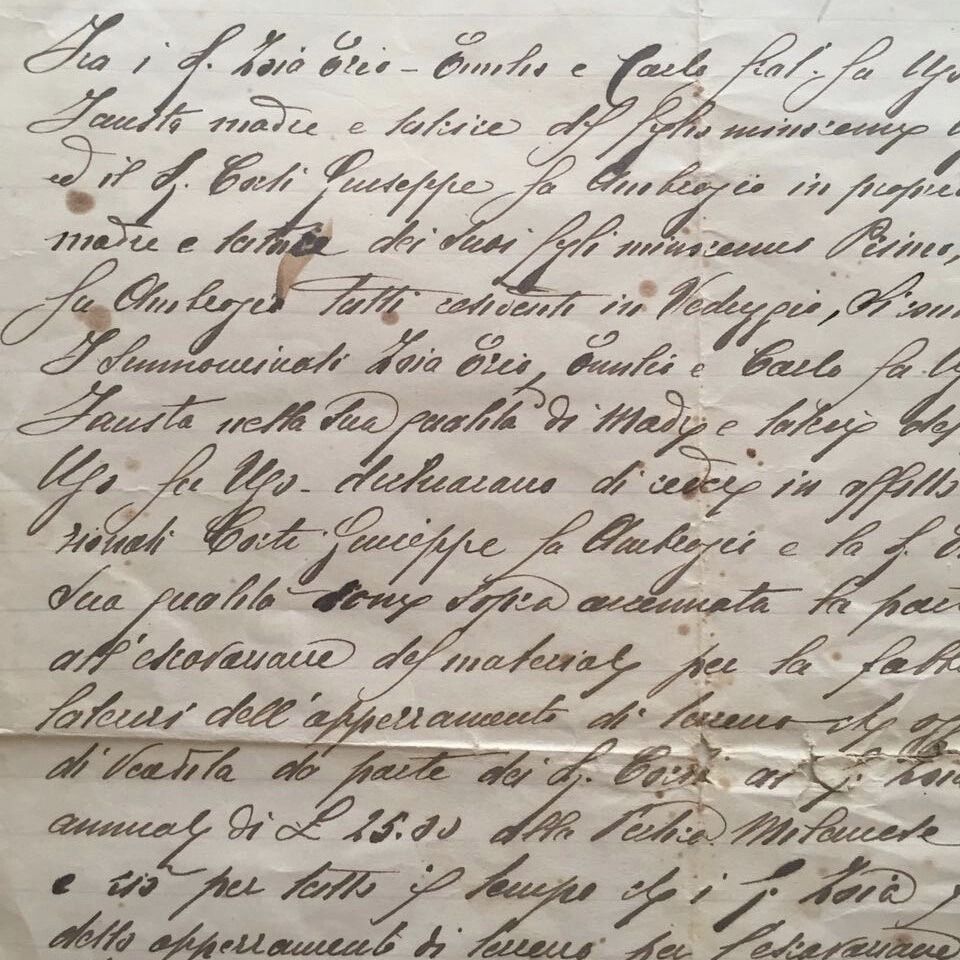 Fra i S. Zoia Erio - Emilio e Carlo frat. fu Ugo
Fausta madre e tutrice del figlio minorenne
ed il S. Corti Giuseppe fu Ambrogio in proprio
madre e tutrice dei suoi figli minorenni Primo,
fu Ambrogio tutti residenti in Veduggio, si
I summominati Zoia Erio, Emilio e Carlo fu
Fausta nella sua qualità di Madre e tutrice del
Ugo fu Ugo - dichiarano di cedere in affitto
zionati Corti Giuseppe fu Ambrogio e la S.
sua qualità come sopra accennata la parte
all'escavazione del materiale per la
laterizi dell'apperzamento di terreno che
di vendita da parte dei S. Corti ai S. Zoia
annuale di £ 25.00 alla Pertica Milanese
e ciò per tutto il tempo che i S. Zoia
detto apperzamento di terreno per l'escavazione